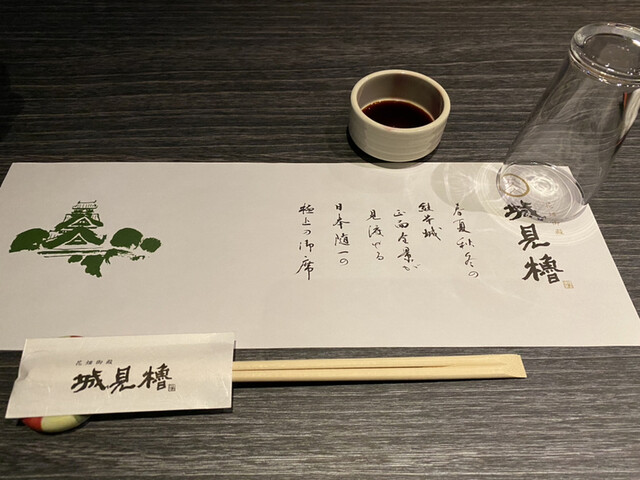 城見櫓
春夏秋冬の
熊本城
正面全景が
見渡せる
日本随一の
極上の御席
花畑御殿
城見櫓